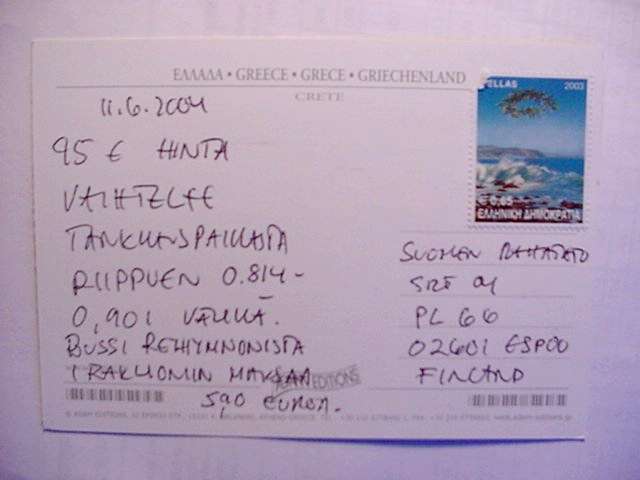 ΕΛΛΑΔΑ • GREECE • GRECE • GRIECHENLAND
CRETE
11.6.2004
95 € HINTA
VAIHTELEE
TANKKAUSPAIKASTA
RIIPPUEN 0.814-
0,901 VÄLILLÄ.
BUSSI RETHYMNONISTA
IRAKLIONIIN MAKSAA
5,90 EUROA.
HELLAS 2003
€ 0.65
ΕΛΛΗΝΙΚΗ ΔΗΜΟΚΡΑΤΙΑ
SUOMEN RAHATATO
SRT 04
PL 66
02601 ESPOO
FINLAND
EDITIONS